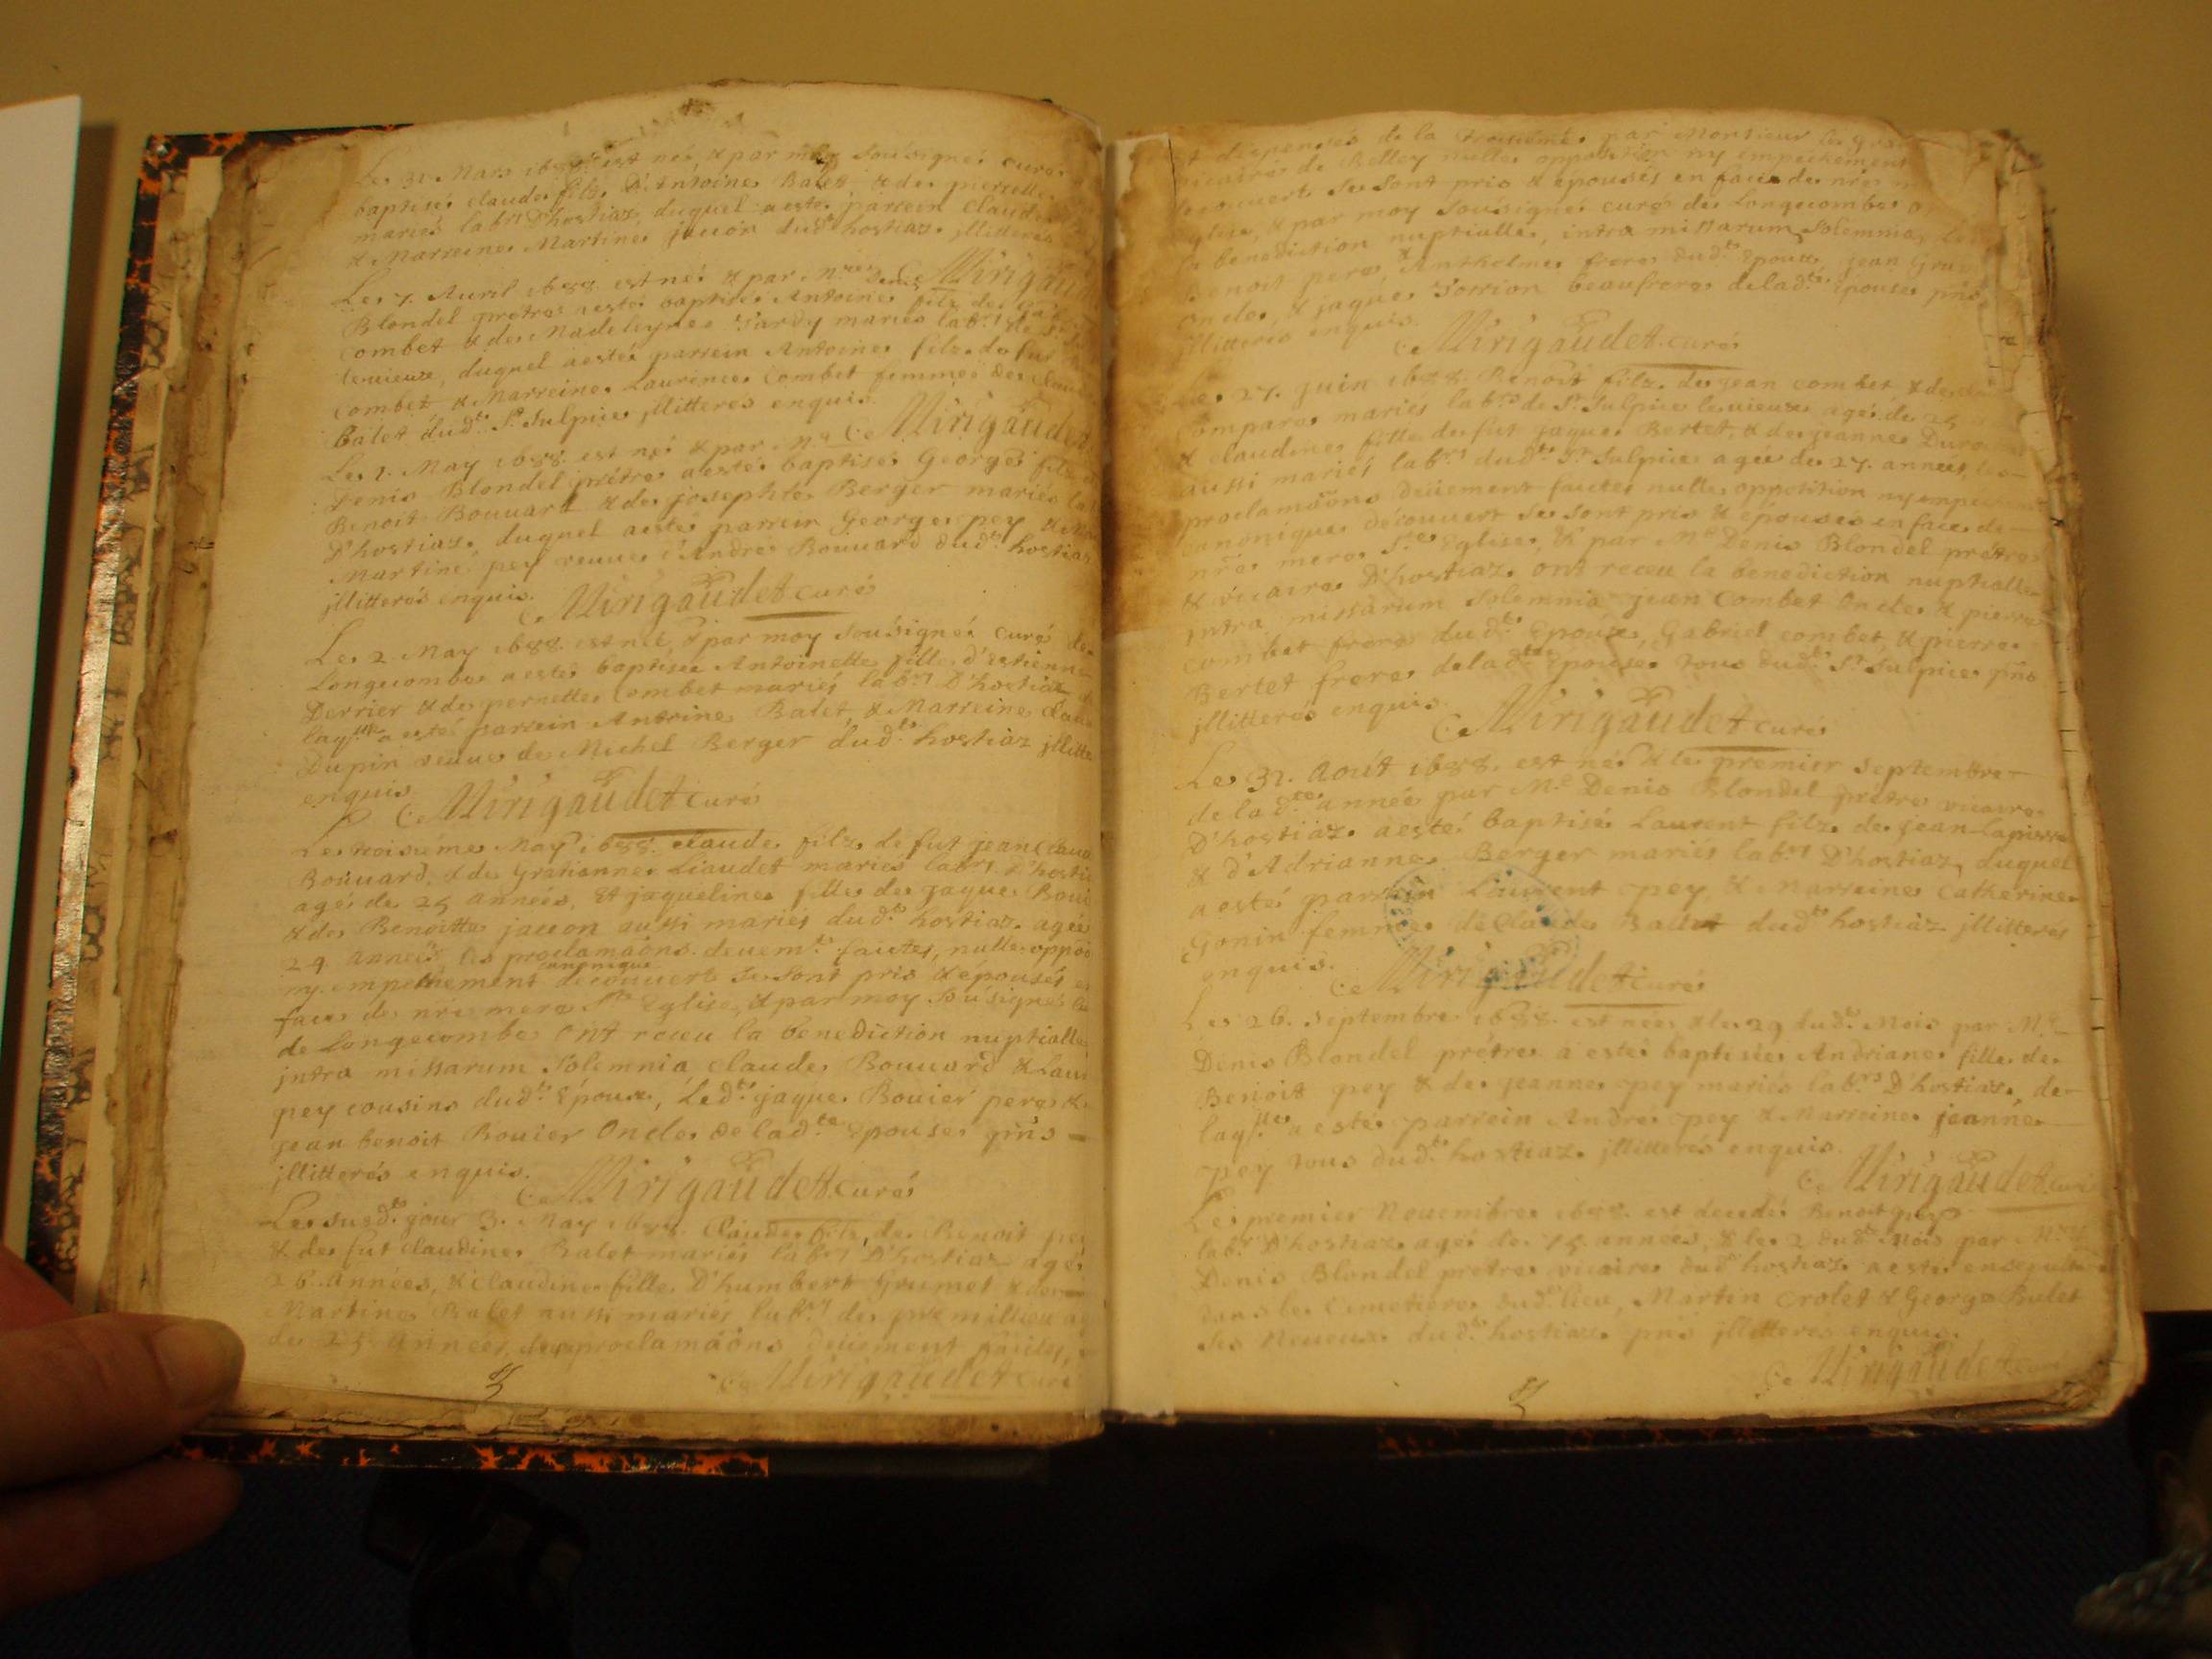 Le 31. Mars 1688. est né, & par moy sousigné curé
baptisé claude filz D'Antoine Balet, & de pernette
mariés lab.rs D'hostiaz, duquel a esté parrein Claude
& Marreine Martine jacon dud.t hostiaz. jllitteres
Le 7. Auril 1688. est né & par M.re Denis Mirigaudet
Blondel prétre a esté baptisé Antoine filz de
combet & de Madeleyne Tardy mariés lab.rs de S.t
leuieux, duquel a esté parrein Antoine filz de fut
combet & Marreine Laurence Combet femme de
Balet dud.t S.t Sulpice jllitteres enquis. Mirigaudet
Le 1. May 1688. est né & par M.e
Denis Blondel prétre a esté baptisé George filz
Benoit Bouuard & de josephte Berger mariés
D'hostiaz, duquel a esté parrein George pey &
Martine pey veuue d'André Bouuard dud.t hostiaz
jllitterés enquis. Mirigaudet curé
Le 2. May 1688. est née, & par moy sousigné curé de
Longecombe a esté baptisée Antoinette fille d'Estienne
Derrier & de pernette Combet mariés lab.rs D'hostiaz
laq.lle a esté parrein Antoine Balet, & Marreine
Dupin veuue de Michel Berger dud.t hostiaz
enquis. Mirigaudet curé
Le troisiéme May 1688. claude filz de fut jean
Bouuard, & de Gratianne Liaudet mariés lab.rs
agé de 25 années, Et jaqueline fille de jaque
& de Benoitte jacon aussi mariés dud.t hostiaz. agée
29 années, les proclamaons deuem.t faites, nulle
ny empechement canonique decouuert se sont pris & épousés
face de nre mere S.te Eglise, & par moy sousigné
de Longecombe Ont receu la benediction nuptialle
jntra missarum solemnia claude Bouuard &
pey cousins dud.t Epoux, Led.t jaque Bouier pere &
jean benoit Bouier Oncle de lad.te epouse pns
jllitterés enquis. Mirigaudet curé
Le susd.t jour 3. May 1688. Claude filz de Benoit pey
& de fut claudine Balet mariés lab.rs D'hostiaz agé
26 Années, & claudine fille D'humbert Grumet & de
Martine Balet aussi mariés lab.rs de premillieu
de 25 années, les proclamaons deuement faites,
Mirigaudet curé
& dispensés de la troisieme par Monsieur le
vicaire de Belley nulle opposition ny empechement
decouuert se sont pris & épousés en face de nre
Eglise, & par moy sousigné curé de Longecombe
la benediction nuptialle, intra missarum solemnia,
Benoit pere, & Anthelme frere dud.t Epoux, jean
Oncle, & jaque beaufrere de lad.te Epouse pns
jllitterés enquis. Mirigaudet curé
Le 27. juin 1688. Benoit filz de jean combet & de
mariés lab.rs de S.t Sulpice leuieux agé de 25
& claudine fille de fut jaque Bertet, & de jeanne
aussi mariés lab.rs dud.t S.t Sulpice agée de 27. années,
proclamaons deuement faictes nulle opposition ny
canonique découuert se sont pris & épousés en face de
nre mere S.te Eglise, & par M.e Denis Blondel prétre
& vicaire D'hostiaz. ont receu la benediction nuptialle
intra missarum solemnia jean Combet Oncle & pierre
combet frere dud.t Epoux, Gabriel combet, & pierre
Bertet frere de lad.te Epouse tous dud.t S.t Sulpice pns
jllitterés enquis. Mirigaudet curé
Le 31. Août 1688. est né & le premier septembre
de lad.te année par M.e Denis Blondel prétre vicaire
D'hostiaz. a esté baptisé Laurent filz de jean Lapierre
& d'Adrianne Berger mariés lab.rs D'hostiaz, duquel
a esté parrein Laurent pey & Marreine Catherine
Gonin femme de Claude Balet dud.t hostiaz jllitterés
enquis. Mirigaudet curé
Le 26. Septembre 1688. est née & le 29 dud.t Mois par M.e
Denis Blondel prétre a esté baptisée Andriane fille de
Benoit pey & de jeanne pey mariés lab.rs D'hostiaz, de
laq.lle a esté parrein André pey & Marreine jeanne
pey tous dud.t hostiaz. jllitterés enquis.
Mirigaudet curé
Le premier Nouembre 1688. est decedé Benoit pey
lab.r D'hostiaz agé de 75 années, & le 2 dud.t Mois par M.re
Denis Blondel pretre vicaire dud.t hostiaz a esté enseputuré
dans le Cimetiere dud.t lieu, Martin Crolet & George Balet
ses Neueux dud.t hostiaz. pns jllitterés enquis.
Mirigaudet curé